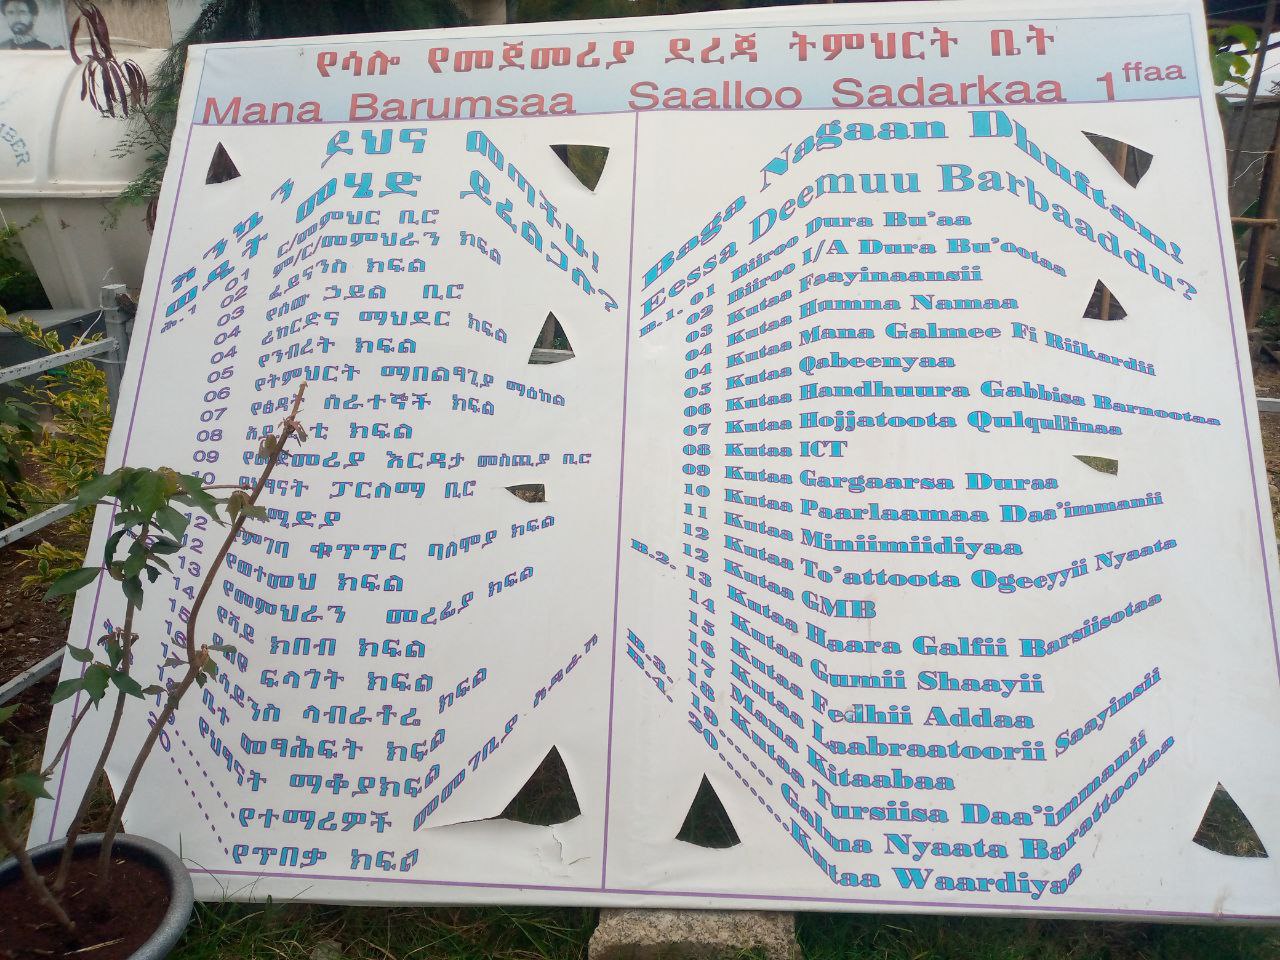 የሳሎ የመጀመሪያ ደረጃ ትምህርት ቤት
Mana Barumsaa Saalloo Sadarkaa 1ffaa
እንኳን ደህና መጣችሁ!
ወዴት መሄድ ይፈልጋሉ?
01 ር/መምህር ቢሮ
02 ም/ር/መምህራን ክፍል
03 ፋይናንስ ክፍል
04 የሰው ኃይል ቢሮ
04 ሪከርድና ማህደር ክፍል
05 የንብረት ክፍል
06 የትምህርት ማበልፀጊያ ማዕከል
07 የፅዳት ሰራተኞች ክፍል
08 ክፍል
09 የመጀመሪያ እርዳታ መስጫያ ቢሮ
10 የህፃናት ፓርላማ ቢሮ
12 የምገባ ቁጥጥር ባለሞያ ክፍል
12 የወተመህ ክፍል
13 የመምህራን መረፊያ ክፍል
14 የሻይ ክበብ ክፍል
15 የልዩ ፍላጎት ክፍል
የሳይንስ ላብራቶሪ ክፍል
ቤተ መፃሕፍት ክፍል
የህፃናት ማቆያክፍል
የተማሪዎች መመገቢያ አዳራሽ
የጥበቃ ክፍል
Baga Nagaan Dhuftan!
Eessa Deemuu Barbaaddu?
B.1. 01 Biiroo Dura Bu'aa
02 Biiroo I/A Dura Bu'ootaa
03 Kutaa Faayinaansii
04 Kutaa Humna Namaa
04 Kutaa Mana Galmee Fi Riikardii
05 Kutaa Qabeenyaa
06 Kutaa Handhuura Gabbisa Barnootaa
07 Kutaa Hojjatoota Qulqullinaa
08 Kutaa ICT
09 Kutaa Gargaarsa Duraa
10 Kutaa Paarlaamaa Daa'immanii
11 Kutaa Miniimiidiyaa
12 Kutaa To'attoota Ogeeyyii Nyaata
B.2. 12 Kutaa GMB
13 Kutaa Haara Galfii Barsiisotaa
14 Kutaa Gumii Shaayii
15 Kutaa Fedhii Addaa
B.3. 16 Kutaa Laabraatoorii Saayinsii
B.4. 17 Mana Kitaabaa
18 Kutaa Tursiisa Daa'immanii
19 Galma Nyaata Barattootaa
20 Kutaa Waardiyaa